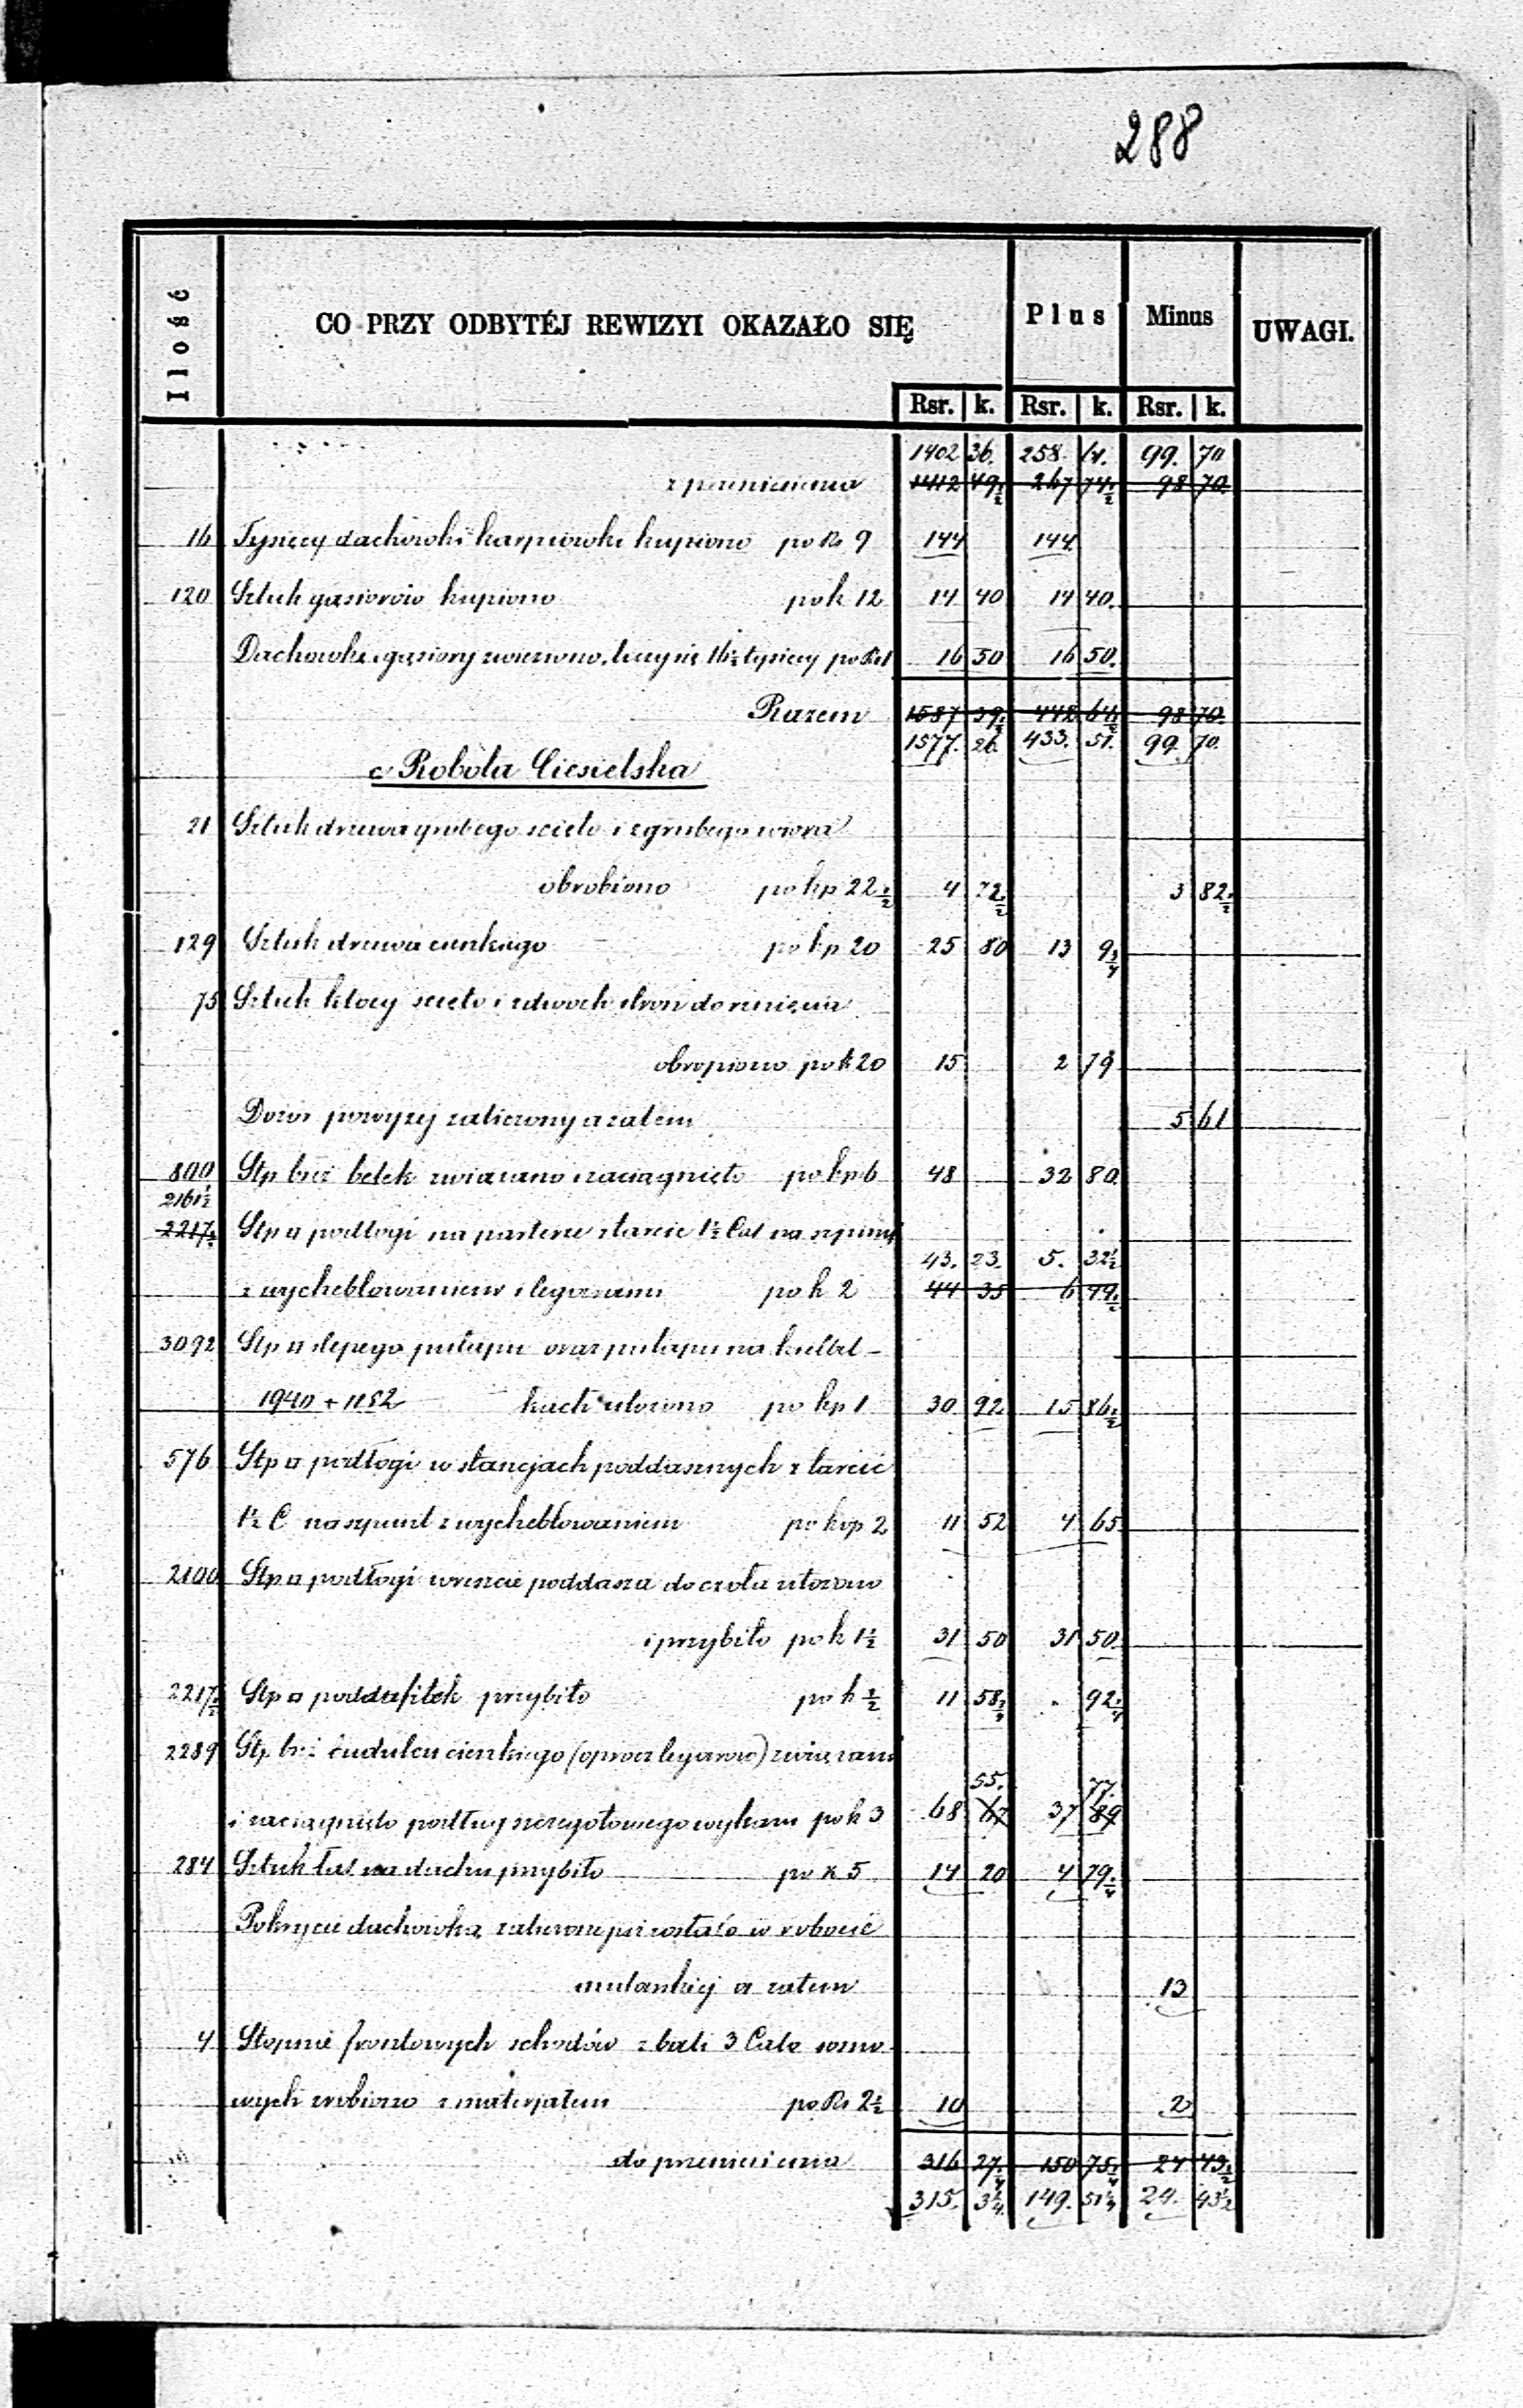 288
Ilość CO PRZY ODBYTÉJ REWIZYI OKAZAŁO SIĘ Plus Minus UWAGI.
Rsr. k. Rsr. k. Rsr. k.
1402 36. 258. 61. 99. 70
z przeniesienia 1412 49½ 267 74½ 98 70
16 Tysięcy dachówki karpiówki kupiono po Rs 9 144 144
120 Sztuk gąsiorów kupiono po k 12 14 40 14 40.
Dachówkę i gąsiory zwieziono, liczy się 16½ tysięcy po Rs 1 16 50 16 50.
Razem 1587 39½ 442 64½ 98 70.
1577. 26. 433. 51. 99. 70.
c Robota Ciesielska
21 Sztuk drzewa grubego ścięto i z grubego wióra
obrobiono po kp 22½ 4 72½ 3 82½
129 Sztuk drzewa cienkiego po kp 20 25 80 13 9¾
75 Sztuk klocy ścięto i z dwóch stron do rznięcia
obrobiono po k 20 15 2 79
Dozór powyżej zaliczony a zatem 5 61
800 Stp bież belek związano i zaciągnięto po kp 6 48 32 80
2161½
2217½ Stp □ podłogi na parterze z tarcic 1½ Cal na szpunt
43. 23. 5. 32½
z wycheblowaniem i legarami po k 2 44 35 6 44½
3092 Stp □ ślepego pułapu oraz pułapu na
1940 + 1152 kach ułożono po kp 1 30 92 15 86½
576 Stp □ podłogi w stancjach poddasznych z tarcic
1½ C na szpunt z wycheblowaniem po kop 2 11 52 4 65
2100 Stp □ podłogi w reszcie poddasza do czoła ułożono
i przybito po k 1½ 31 50 31 50
2217½ Stp □ podsufitek przybito po k ½ 11 58½ . 92¼
2289 Stp bież budulcu cienkiego (oprócz legarów) związano
55. 77.
i zaciągnięto podług szczegółowego wykazu po k 3 68 67 37 89
284 Sztuk łat na dachu przybito po k 5 14 20 4 79¼
Pokrycie dachówką zaliczone już zostało w robocie
mularskiej a zatem 13
4 Stopnie frontowych schodów z bali 3 Calo
wych zrobiono z materjałem po Rs 2½ 10 2
do przeniesienia 316 27¼ 150 75¼ 24 43½
315. 3¼ 149. 51¼ 24. 43½